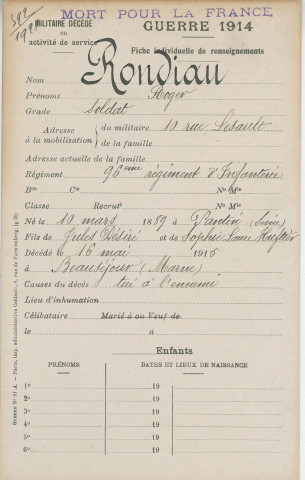 MORT POUR LA FRANCE
MILITAIRE DÉCÉDÉ
en
activité de service
GUERRE 1914
Fiche individuelle de renseignements
Nom Rondiau
Prénoms Roger
Grade soldat
Adresse à la mobilisation { du militaire 10 rue Lesault
de la famille
Adresse actuelle de la famille
Régiment 96ème régiment d'Infanterie
Bon Cie No Mle
Classe Recrut No Mle
Né le 10 mars 1889 à Pantin (Seine)
Fils de Jules Désiré et de Sophie
Décédé le 16 mai 1915
à Beauséjour (Marne)
Causes du décès tué à l'ennemi
Lieu d'inhumation
Célibataire Marié à ou Veuf de
le à
Enfants
PRÉNOMS DATES ET LIEUX DE NAISSANCE
1o 19
2o 19
3o 19
4o 19
5o 19
6o 19